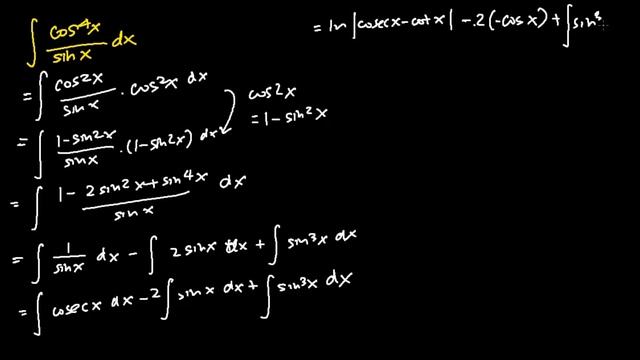 ∫ cos⁴x / sin x dx
= ∫ cos²x / sin x · cos²x dx
= ∫ 1-sin²x / sin x · (1-sin²x) dx
cos²x
= 1 - sin²x
= ∫ 1 - 2 sin²x + sin⁴x / sin x dx
= ∫ 1 / sin x dx - ∫ 2 sin x dx + ∫ sin³x dx
= ∫ cosec x dx - 2 ∫ sin x dx + ∫ sin³x dx
= ln |cosec x - cot x| - 2 (-cos x) + ∫ sin³